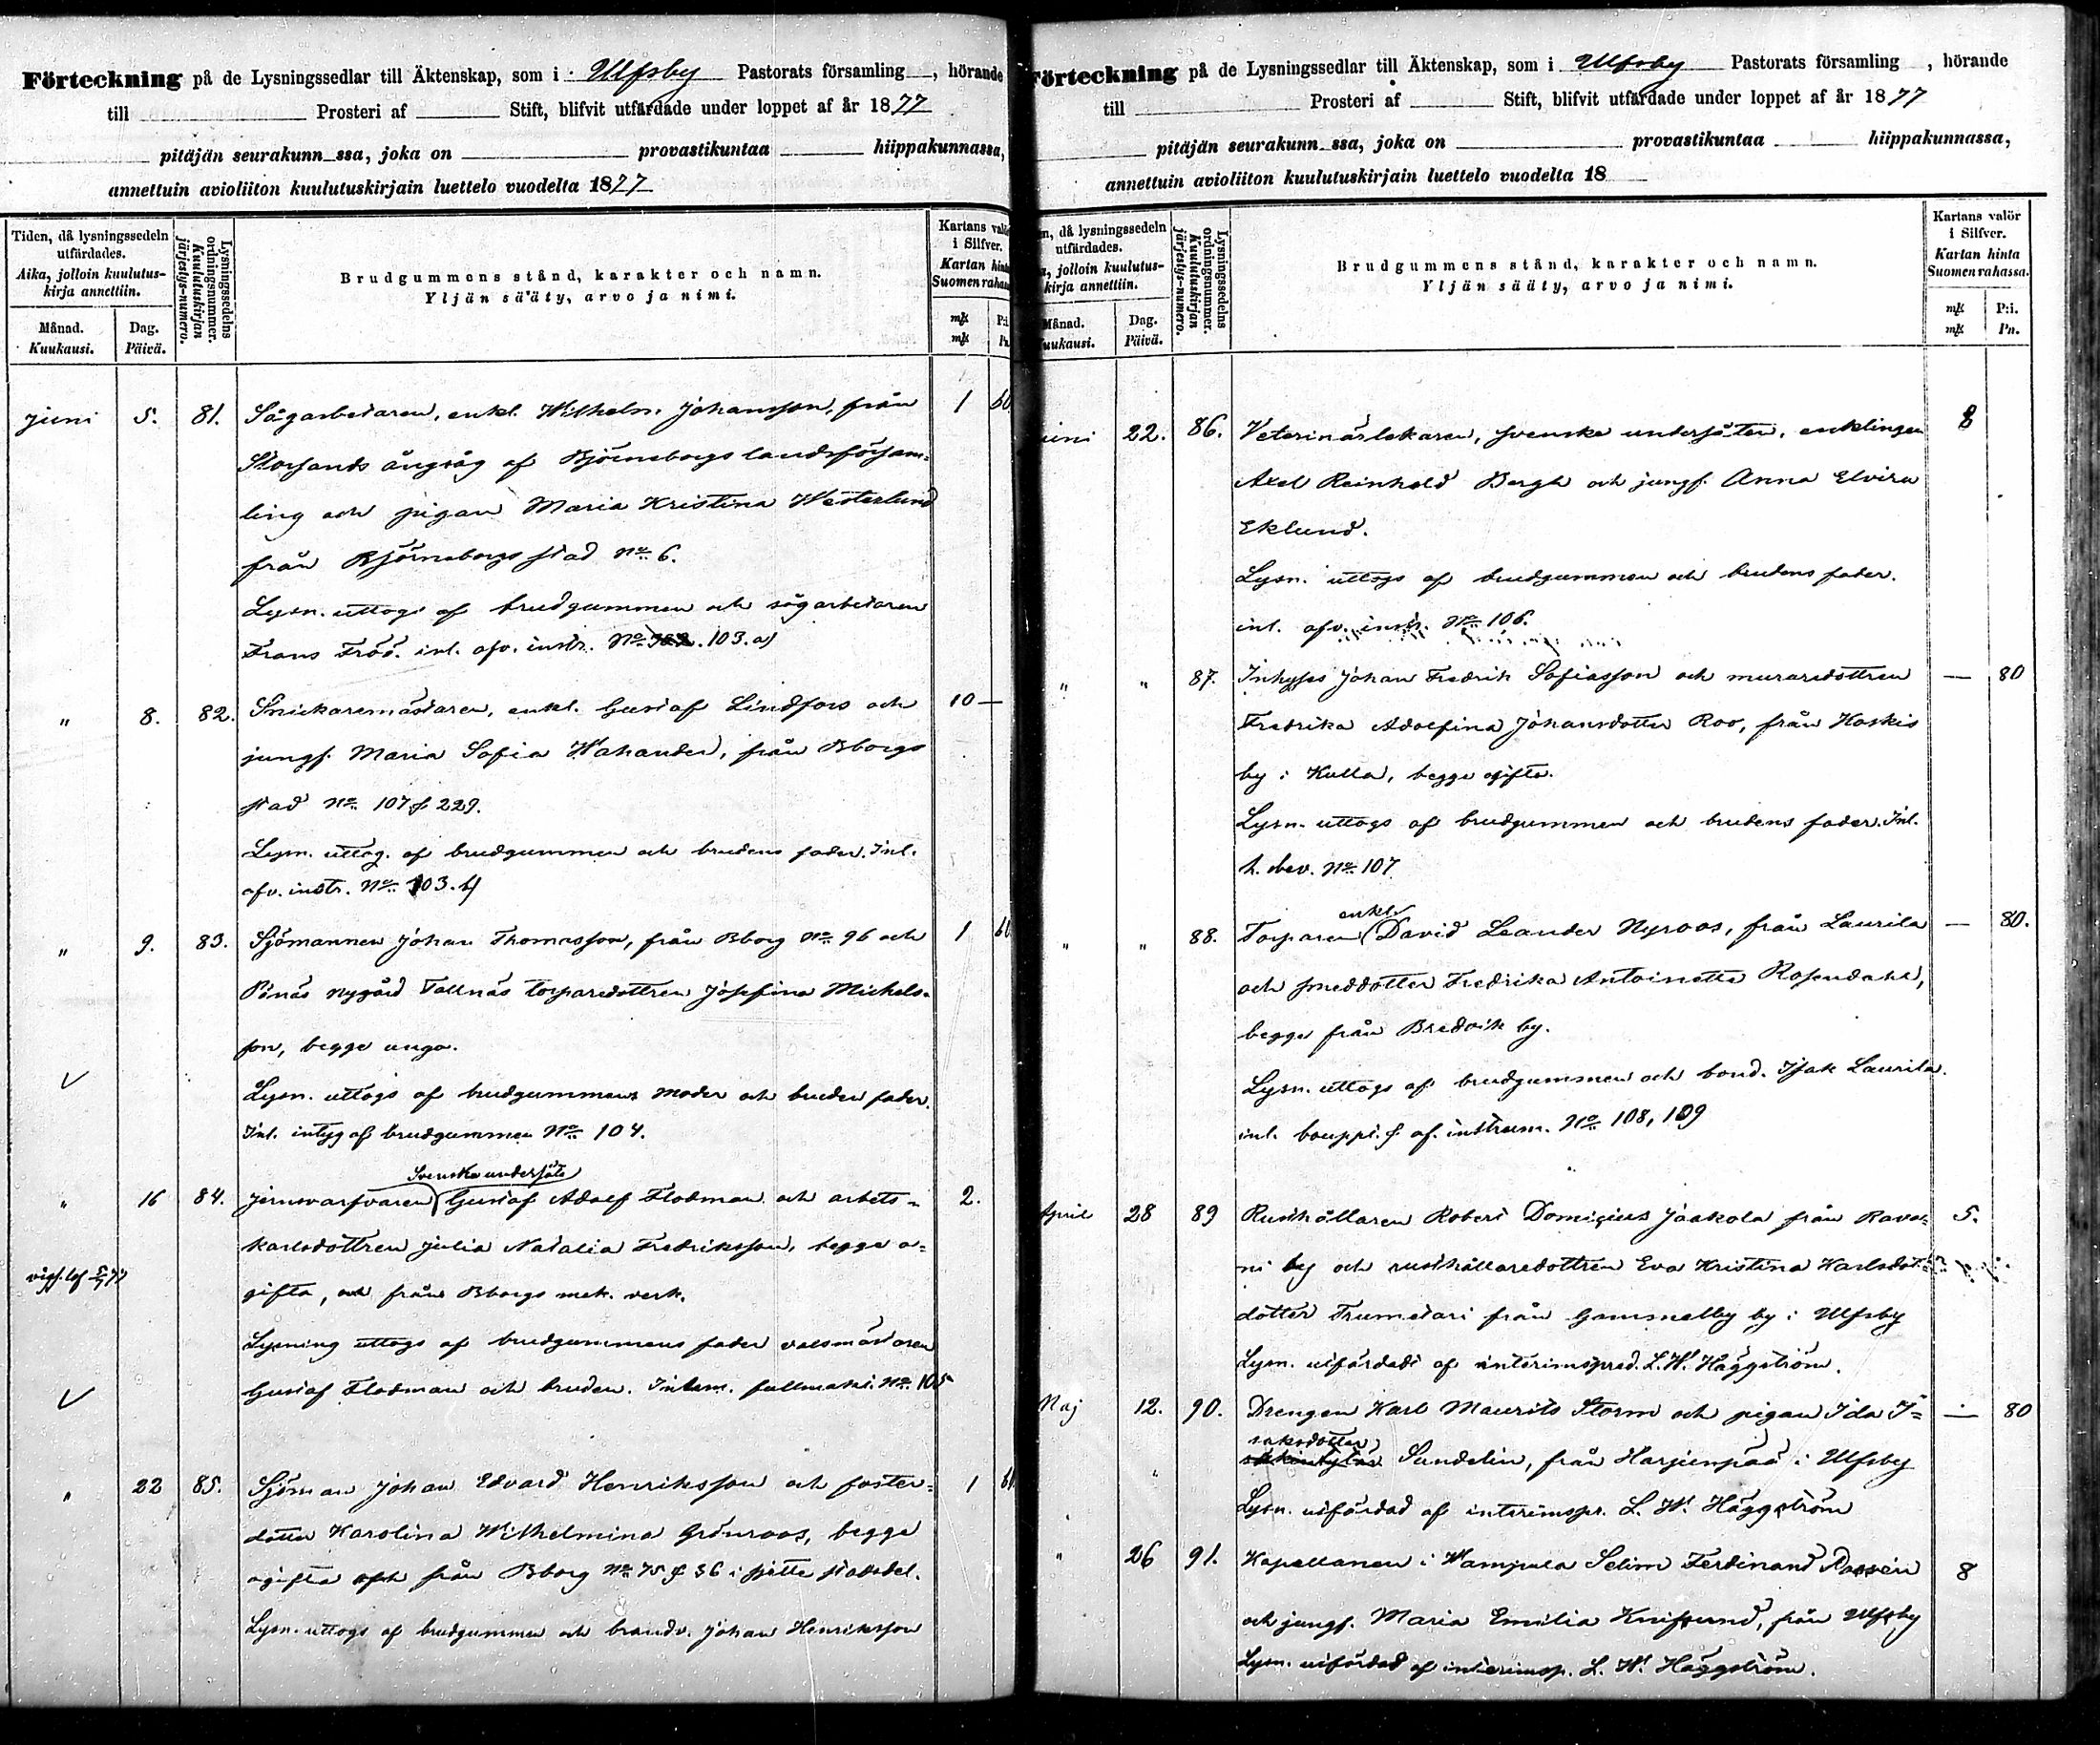 Förteckning på de Lysningssedlar till Äktenskap, som i Ulfsby Pastorats församling , hörande
till Prosteri af Stift, blifvit utfärdade under loppet af år 1877
pitäjän seurakunn ssa, joka on provastikuntaa hiippakunnassa,
annettuin avioliiton kuulutuskirjain luettelo vuodelta 1877
Tiden, då lysningssedeln utfärdades.
Aika, jolloin kuulutus-kirja annettiin.
Månad. Kuukausi.
Dag. Päivä.
Lysningssedelns ordningsnummer.
Kuulutuskirjan järjestys-numero.
Brudgummens stånd, karakter och namn.
Yljän sääty, arvo ja nimi.
Kartans valör i Silfver.
Kartan hinta Suomen rahassa
mk P:i
mk Pn.
Juni 5. 81. Sågarbetaren, enkl. Wilhelm Johansson, från 1 60.
Storsands ångsåg af Björneborgs landsförsam-
ling och pigan Maria Kristina Westerlund
från Björneborgs stad No 6.
Lysn. uttogs af brudgummen och sågarbetaren
Frans Fröö. inl. afv. instr. No 103. a)
" 8. 82. Snickaremästaren, enkl. Gustaf Lindfors och 10 —
jungf. Maria Sofia Wahander, från Bborgs
stad No 107 & 229.
Lysn. uttog. af brudgummen och brudens fader. Inl.
afv. instr. No 103. b)
" 9. 83. Sjömannen Johan Thomasson, från Bborg No 96 och 1 60
Pånäs nygård Tallnäs torparedottren Josefina Michels-
son, begge unga.
Lysn. uttogs af brudgummens moder och bruden fader.
Inl. intyg af brudgummen No 104.
Svenske undersåte
" 16 84. Jernsvarfvaren Gustaf Adolf Flodman och arbets- 2.
karlsdottren Julia Natalia Fredriksson, begge o-
gifta, och från Bborgs mek. verk.
Lysning uttogs af brudgummens fader valsmästaren
Gustaf Flodman och bruden. Inlem. fullmakt. No 105
" 22 85. Sjöman Johan Edvard Henriksson och foster- 1 60
dotter Karolina Wilhelmina Grönroos, begge
ogifta och från Bborg No 75 & 36 i sjette stadsdel.
Lysn. uttogs af brudgummen och brandv. Johan Henriksson
Förteckning på de Lysningssedlar till Äktenskap, som i Ulfsby Pastorats församling , hörande
till Prosteri af Stift, blifvit utfärdade under loppet af år 1877
pitäjän seurakunn ssa, joka on provastikuntaa hiippakunnassa,
annettuin avioliiton kuulutuskirjain luettelo vuodelta 18
n, då lysningssedeln utfärdades.
a, jolloin kuulutus-kirja annettiin.
Månad. uukausi.
Dag. Päivä.
Lysningssedelns ordningsnummer.
Kuulutuskirjan järjestys-numero.
Brudgummens stånd, karakter och namn.
Yljän sääty, arvo ja nimi.
Kartans valör i Silfver.
Kartan hinta Suomen rahassa.
mk P:i.
mk Pn.
uni 22. 86. Veterinärläkaren, svenske undersåten, enklingen 8
Axel Reinhold Bergh och jungf. Anna Elvira
Eklund.
Lysn. uttogs af brudgummen och brudens fader.
inl. afv. instr. No 106.
" " 87. Inhyses Johan Fredrik Sofiasson och muraredottren — 80
Fredrika Adolfina Johansdotter Roo, från Haskis
by i Kulla, begge ogifta.
Lysn. uttogs af brudgummen och brudens fader. Inl.
h. bev. No 107
enkl.
" " 88. Torparen David Leander Nyroos, från Laurila — 80.
och smeddotter Fredrika Antoinetta Rosendahl,
begge från Bredvik by.
Lysn. uttogs af brudgummen och bond. Isak Laurila.
inl. bouppt. & af. instrum. No 108, 109
April 28 89 Rusthållaren Robert Domicius Jaakola från Rava- 5.
ni by och rusthållaredottren Eva Kristina Karlsdot
dotter Trumetari från Gammelby by i Ulfsby
Lysn. utfärdads af interimspred. L. W. Häggström.
Maj 12. 90. Drengen Karl Maurits Storm och pigan Ida I- — 80
saksdotter
Sundelin, från Harjunpää i Ulfsby
Lysn. utfärdad af interimspr. L. W. Häggström
" 26 91. Kapellanen i Wampula Selim Ferdinand Rosséen 8
och jungf. Maria Emilia Knifsund, från Ulfsby
Lysn. utfärdad af interimsp. L. W. Häggström.